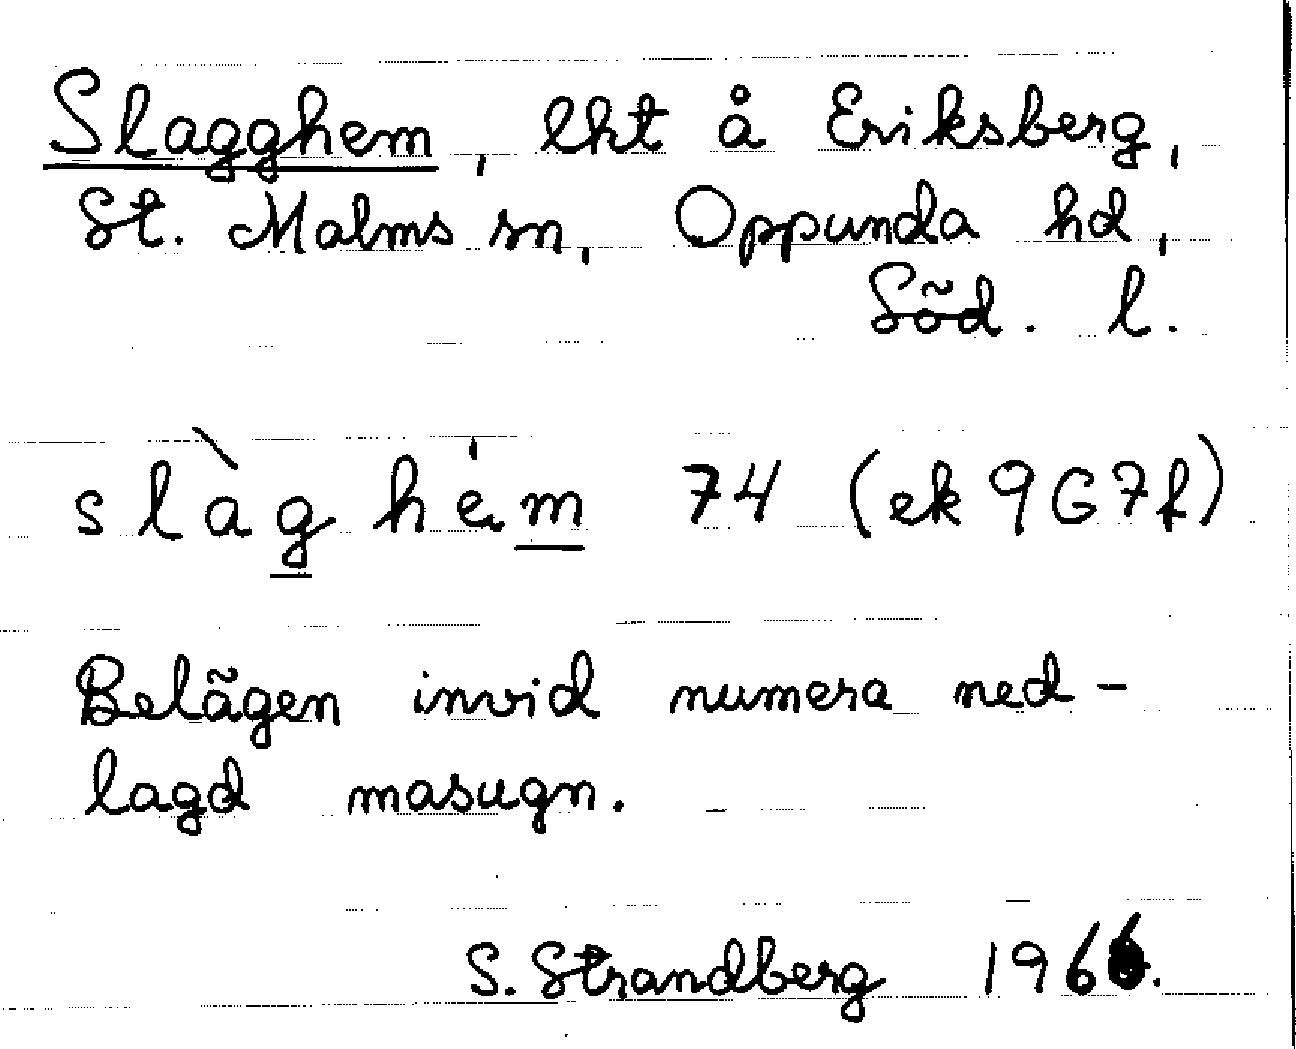 Slagghem, lht å Eriksberg,
St. Malms sn, Oppunda hd,
Söd. l.
slàg hem 74 (ek 9G7f)
Belägen invid numera ned-
lagd masugn.
S. Strandberg 1966.